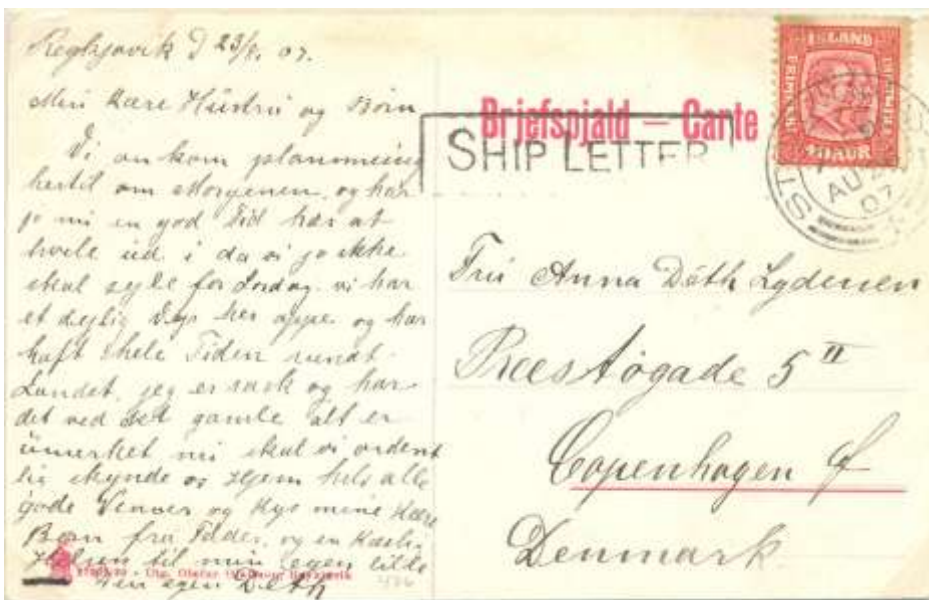 Regkjavik d 23/8. 07.
Min Kære Hustru og Børn
Vi an kom planmæsig
hertil om Morgenen, og har
jo nu en god Tid her at
hvile ud i da vi jo ikke
skal sejle før Lørdag. vi har
et dejlig Vejr her oppe og har
haft i hele Tiden rundt
Landet, jeg er rask og har
det ved det gamle alt er
nu skal vi ordent
lig skynde os Hjem hils alle
gode Venner og Kys mine Kære
Børn fra Fader. og en Kærlig
Hilsen til min egen lille
Din egen Deth
Brjefspjald — Carte
SHIP LETTER
ISLAND
FRIMERKI
10 AUR
AU 2
07
Fru Anna Deth Lydersen
Præstøgade 5 II
Copenhagen
Denmark